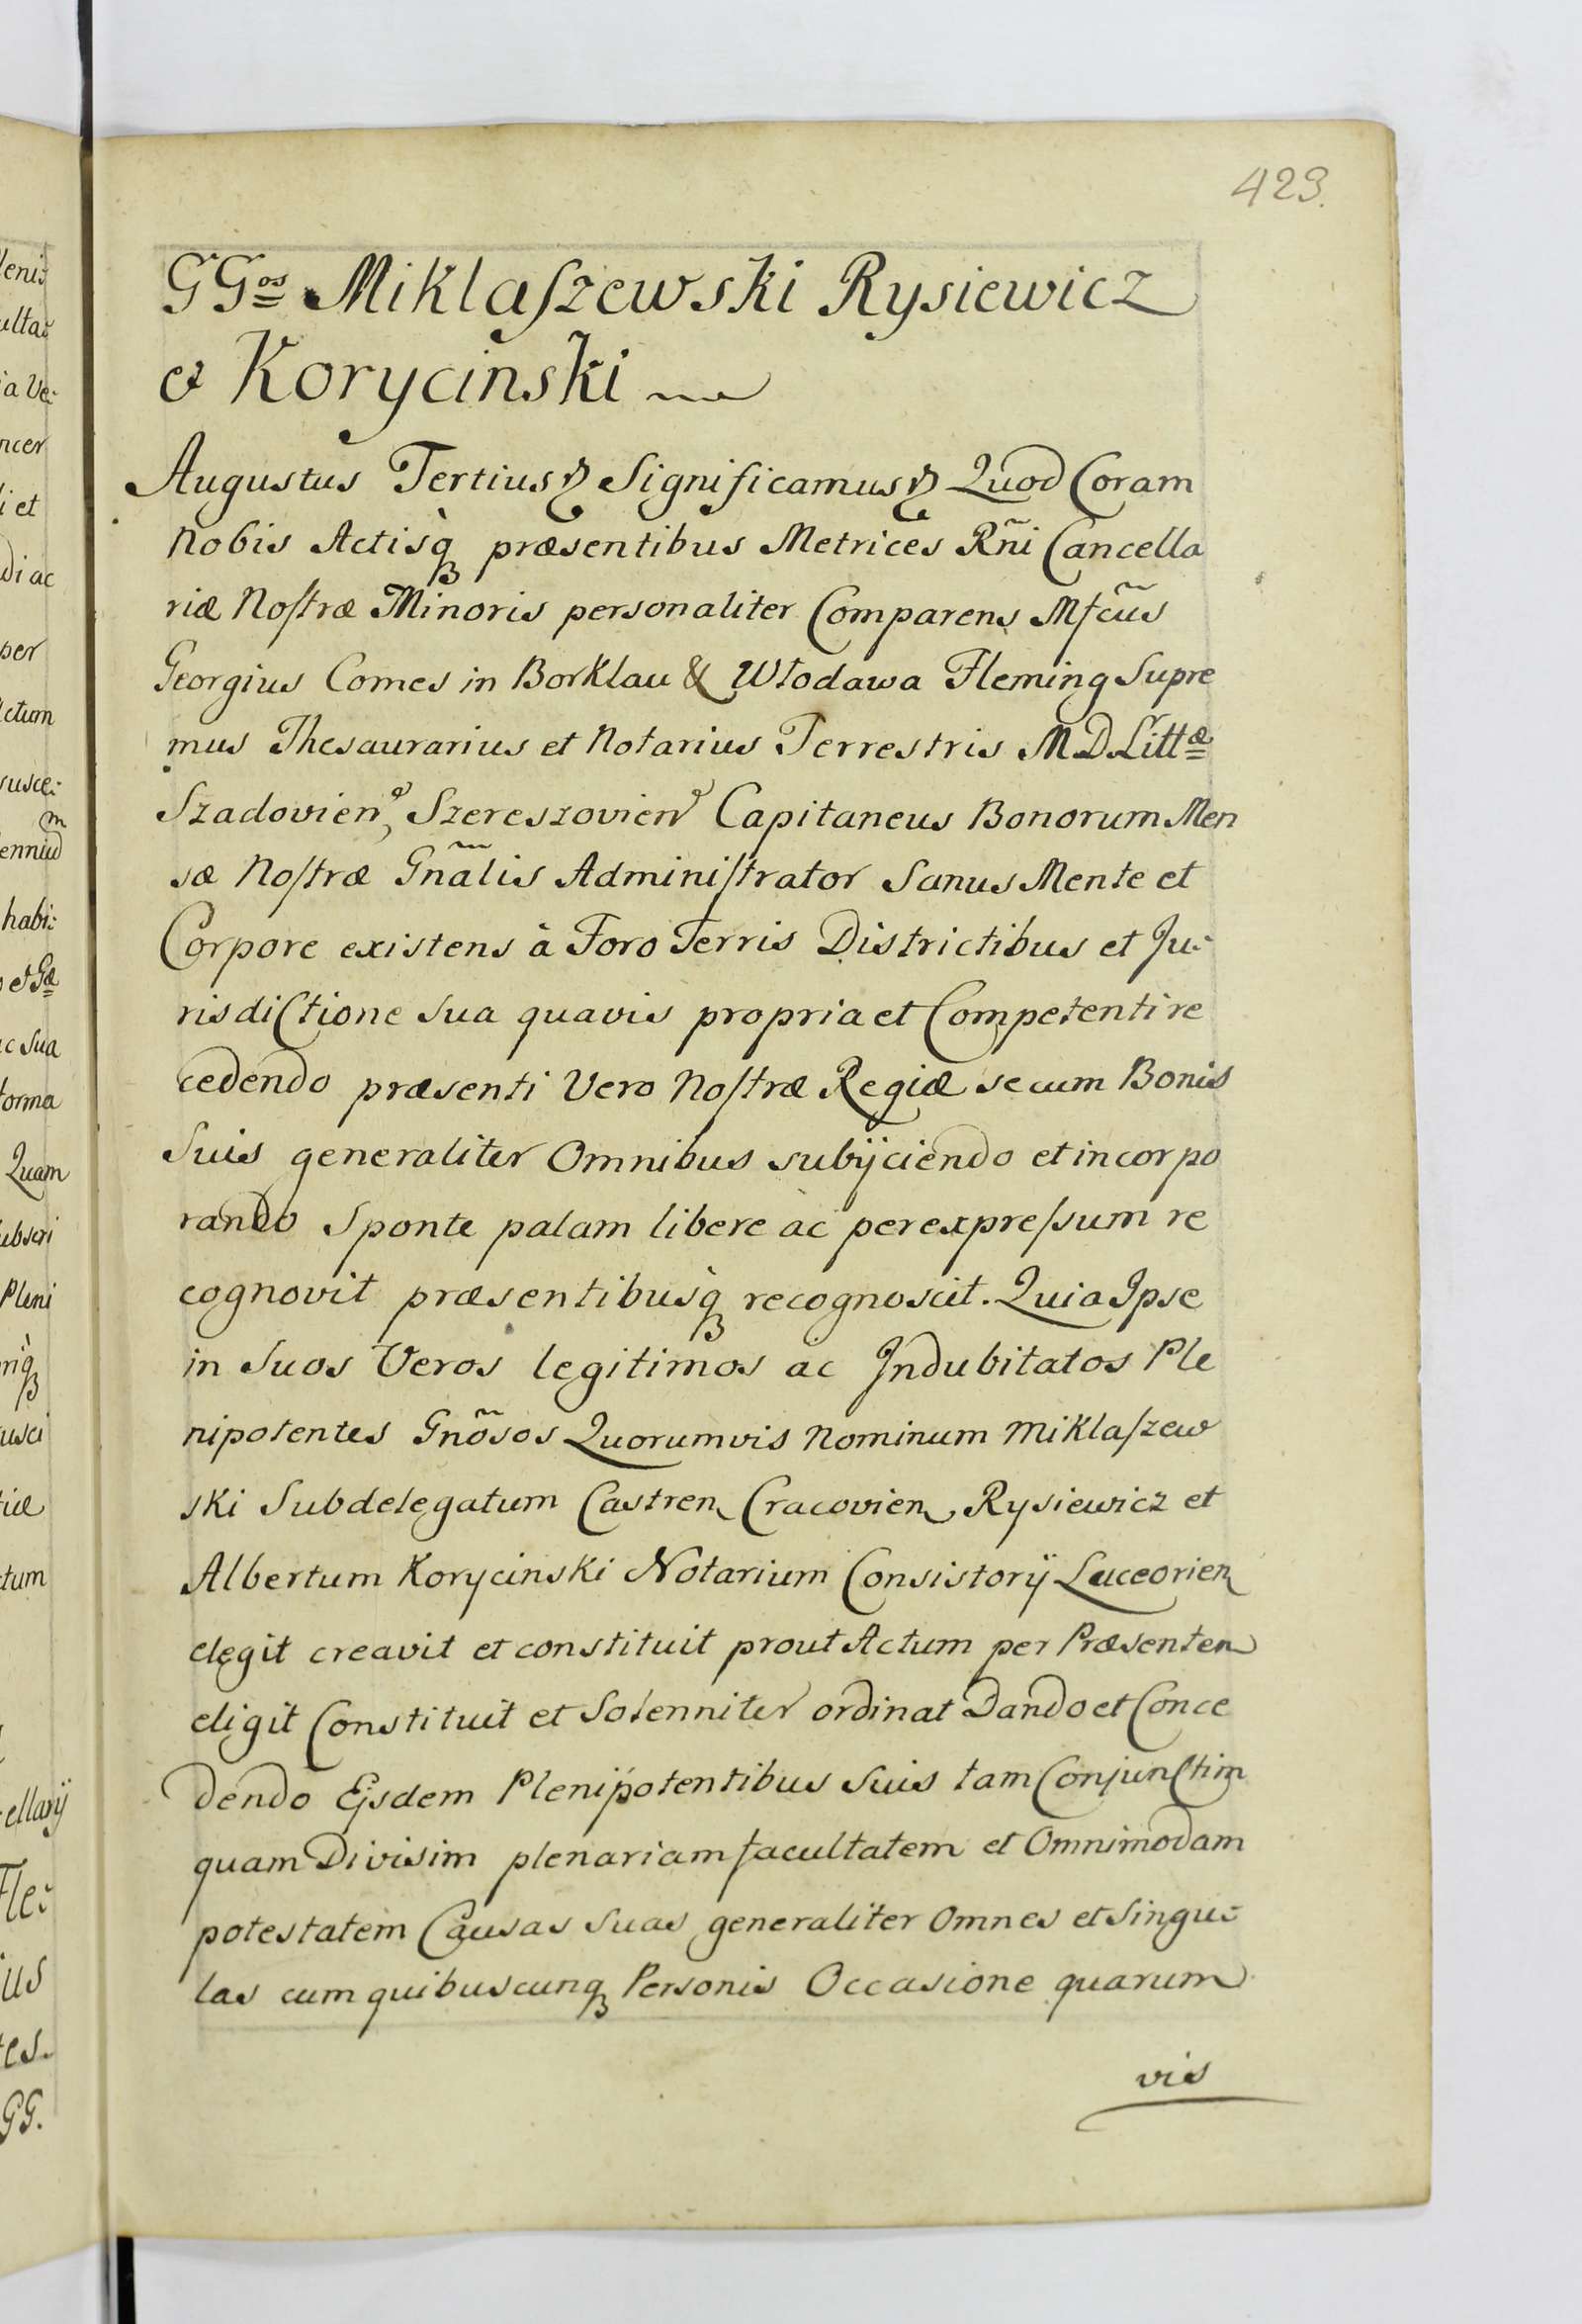 423.
GG^os Miklaſzewski Rysiewicz
et Korycinski
Augustus Tertius & Significamus & Quod Coram
Nobis Actisq̀ꝫ præsentibus Metrices Rñi Cancella
riæ Noſtræ Minoris personaliter Comparens Mfcũs
Georgius Comes in Borklau & Włodawa Fleming Supre
mus Thesaurarius et Notarius Terrestris M D Litt^æ
Szadovien, Szereszovien Capitaneus Bonorum Men
sæ Noſtræ Gñalis Adminiſtrator Sanus Mente et
Corpore existens à Foro Terris Districtibus et Ju-
risdictione sua quavis propria et Competenti re
cedendo præsenti Vero Noſtræ Regiæ se cum Bonis
Suis generaliter Omnibus subijciendo et incorpo
rando Sponte palam libere ac per expreſsum re
cognovit præsentibusq̀ꝫ recognoscit. Quia Ipse
in Suos Veros legitimos ac Indubitatos Ple
nipotentes Gnõsos Quorumvis Nominum Miklaſzew
ski Subdelegatum Castren Cracovien Rysiewicz et
Albertum Korycinski Notarium Consistorÿ Luceorien
elegit creavit et constituit prout Actum per Præsenten
eligit Constituit et Solenniter ordinat Dando et Conce
dendo Ejsdem Plenipotentibus Suis tam Conjunctim
quam Divisim plenariam facultatem et Omnimodam
potestatem Causas Suas generaliter Omnes et Singu-
las cum quibuscunqꝫ Personis Occasione quarum
vis